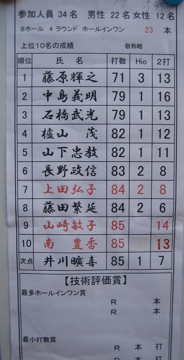 参加人員 34名 男性 22名 女性 12名
8ホール 4 ラウンド ホールインワン 23 本
上位10名の成績 敬称略
順位 氏名 打数 Hio 2打
1 藤原輝之 71 3 13
2 中島義明 79 1 16
3 石橋武光 79 1 13
4 植山 茂 82 1 11
5 山下忠教 82 1 11
6 長野政信 83 2 8
7 上田弘子 84 2 8
8 藤田繁延 84 2 6
9 山崎敏子 85 14
10 南 豊香 85 13
次点 井川曠喜 85 1 7
【技術評価賞】
最多ホールインワン賞
R 本
R 本
最小打数賞
R 打
R 打